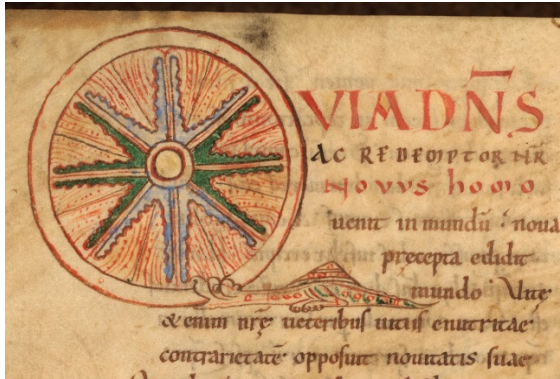 QUIA DN̅S
AC REDEMPTOR NR̅
NOVVS homo
uenit in mundu̅ · noua
precepta edidit
mundo Vite
& enim nr̅ę ueteribus uitiis enutritae
contrarietate̅ opposuit nouitatis suae